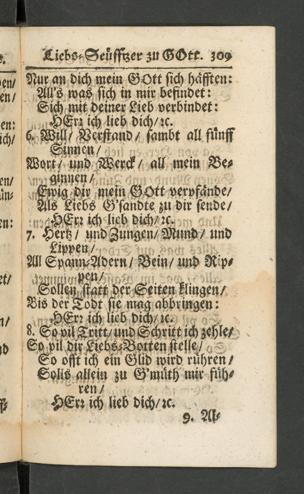 Liebs-Seüfftzer zu GOtt. 309
Nur an dich mein GOtt sich häfften:
All's was sich in mir befindet:
Sich mit deiner Lieb verbindet:
HErr ich lieb dich/ꝛc.
6. Will/ Verstand/ sambt all fünff
Sinnen/
Wort/ und Werck/ all mein Be-
ginnen/
Ewig dir mein GOtt verpfände/
Als Liebs G'sandte zu dir sende/
HErr ich lieb dich/ꝛc.
7. Hertz/ und Zungen/ Mund/ und
Lippen/
All Spann-Adern/ Bein/ und Rip-
pen/
Sollen statt der Seiten klingen/
Bis der Todt sie mag abbringen:
HErr ich lieb dich/ꝛc.
8. So vil Tritt/ und Schritt ich zehle/
So vil dir Liebs-Botten stelle/
So offt ich ein Glid wird rühren/
Solls allein zu G'müth mir füh-
ren/
HErr ich lieb dich/ꝛc.
9. Al-